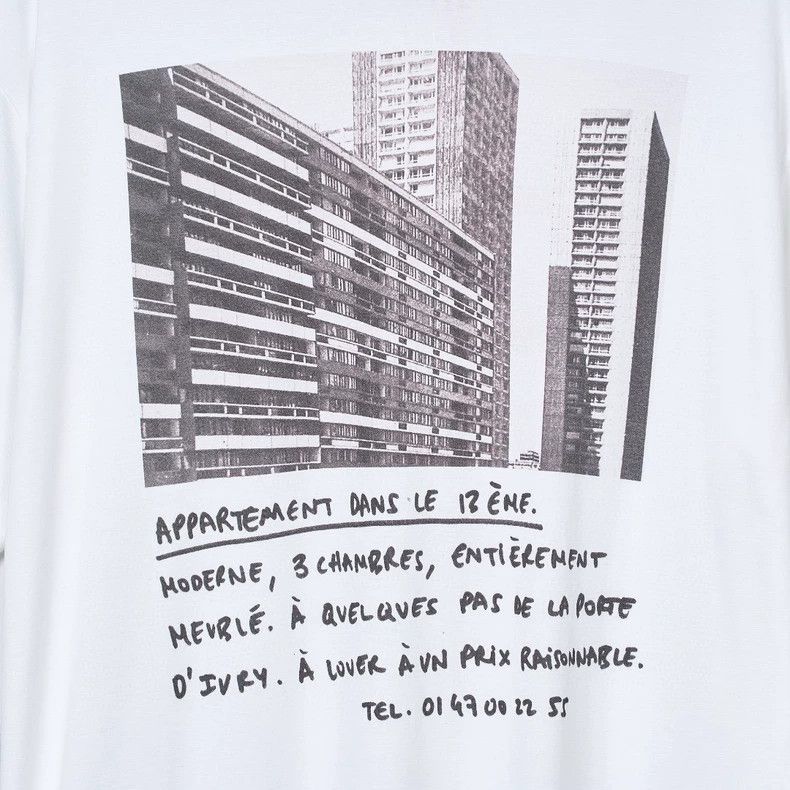 APPARTEMENT DANS LE 12ÈME.
MODERNE, 3 CHAMBRES, ENTIÈREMENT
MEUBLÉ. À QUELQUES PAS DE LA PORTE
D'IVRY. À LOUER À UN PRIX RAISONNABLE.
TEL. 01 47 00 22 55